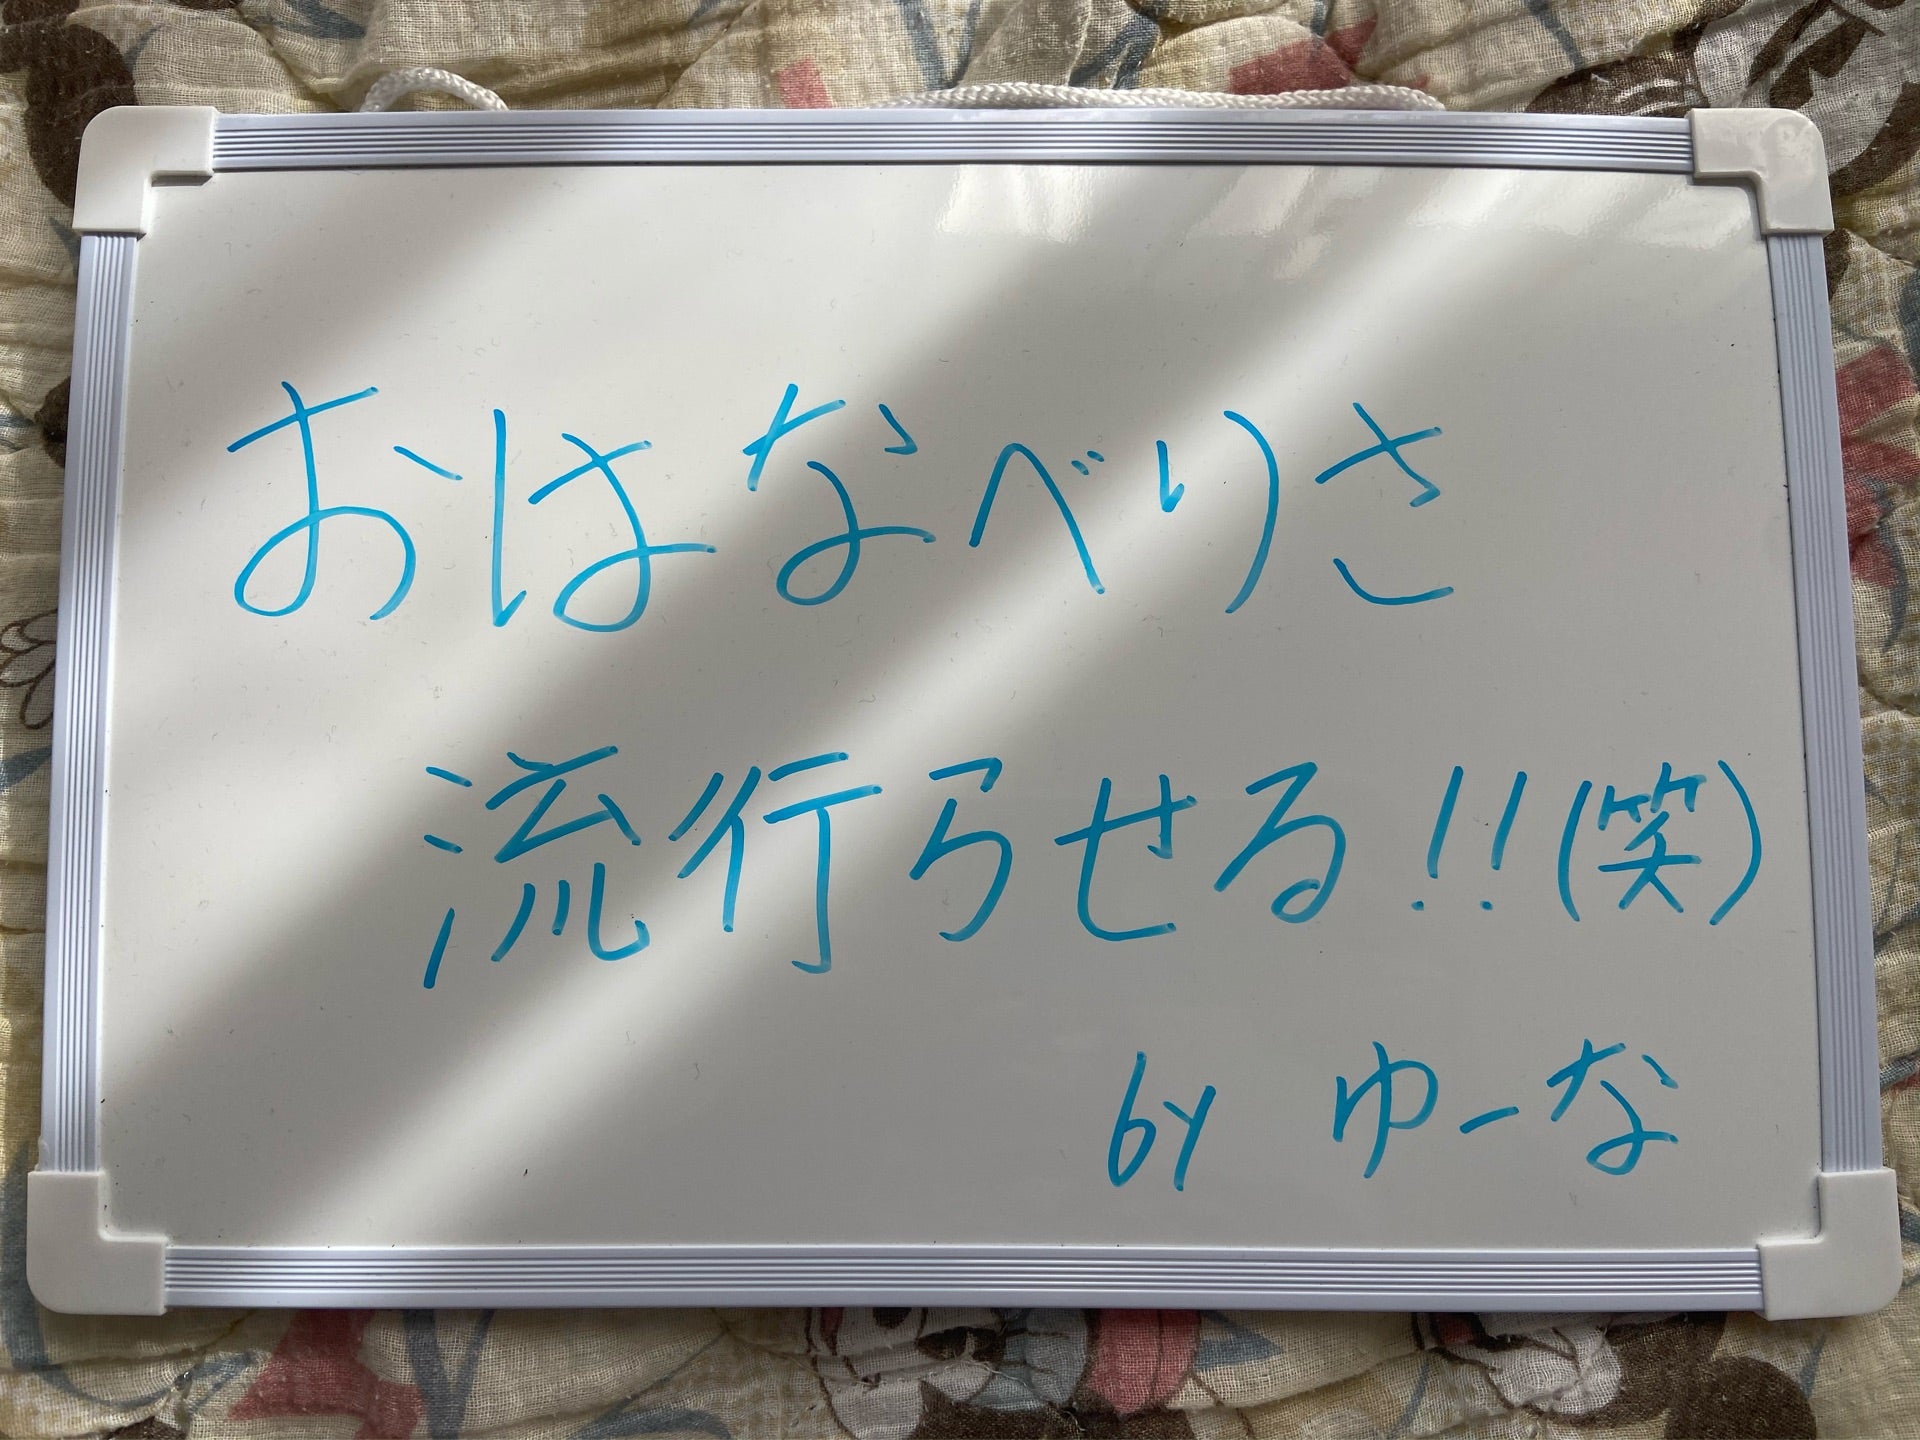 おはなべりさ
流行らせる!!(笑)
by ゆーな